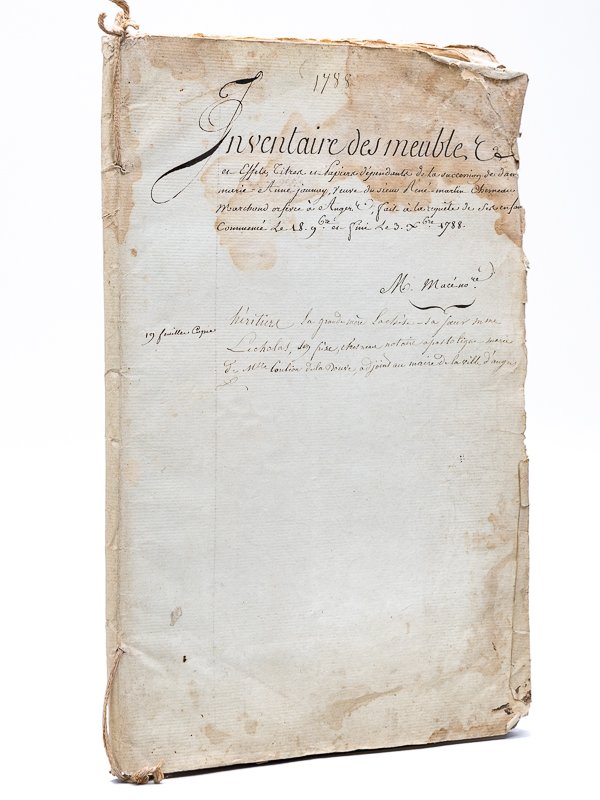 1788
Inventaire des meubles &a
et Effets, Titres et papiers dépendants de la succession de dame
marie Anne jaunay, veuve du sieur René martin Chesneau
Marchand orfevre à Angers, fait à la requête de ses enfans
Commencé Le 18. 9bre et fini Le 3. Xbre 1788.
M. Macé nore
19 feuilles Copie
héritiers la grand mère la soeur mme
Lechalas, son frère, chesneau notaire apostolique, marie
de Mtre Coulion de la Douve, adjoint au maire de la ville d'angers